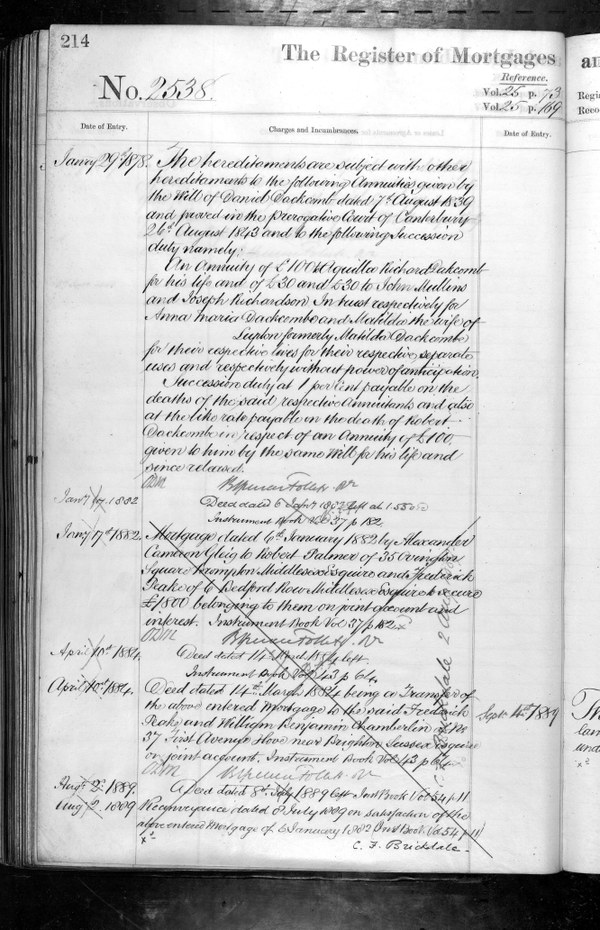 214
The Register of Mortgages
No. 2538.
Reference.
Vol. 25 p. 73
Vol. 25 p. 169
Date of Entry.
Charges and Incumbrances.
Date of Entry.
Jan'y 29th 1878.
The hereditaments are subject with other
hereditaments to the following Annuities given by
the Will of Daniel Dackcomb dated 7th August 1839
and proved in the Prerogative Court of Canterbury
26th August 1843 and to the following Succession
duty namely:
An Annuity of £100 to Aquilla Richard Dakcomb
for his life and of £30 and £30 to John Mullins
and Joseph Richardson In trust respectively for
Anna Maria Dackcombe and Matilda the wife of
Lupton formerly Matilda Dackcombe
for their respective lives for their respective separate
uses and respectively without power of anticipation.
Succession duty at 1 per Cent payable on the
deaths of the said respective Annuitants and also
at the like rate payable on the death of Robert
Dackcombe in respect of an Annuity of £100,
given to him by the same Will for his life and
since released.
Brent Spencer Follett
Jan'y 17. 1882
Deed dated 6 Jan'y 1882 left at 1.55
Instrument Book Vol 37 p 182
Jan'y 17th 1882
Mortgage dated 6th January 1882 by Alexander
Cameron Gleig to Robert Palmer of 35 Ovington
Square Brompton Middlesex Esquire and Frederick
Peake of 6 Bedford Row Middlesex Esquire to secure
£1800 belonging to them on joint account and
interest. Instrument Book Vol 37 p 182
April 10th 1884.
Deed dated 14th March 1884 left.
Instrument Book Vol 43 p 64.
April 10th 1884.
Deed dated 14th March 1884 being a Transfer of
the above entered Mortgage to the said Frederick
Peake and William Benjamin Chamberlin of No
37 First Avenue Hove near Brighton Sussex Esquire
on joint account. Instrument Book Vol 43 p 64
Sept. 4th 1889
Aug. 2. 1889.
A deed dated 8th July 1889 left Inst Book Vol 54 p 11
Aug 2. 1889
Reconveyance dated 8 July 1889 on satisfaction of the
above entered Mortgage of 6 January 1882 Inst Book Vol 54 p 11
C. F. Brickdale
an
Regi
Reco
Th
lan
und